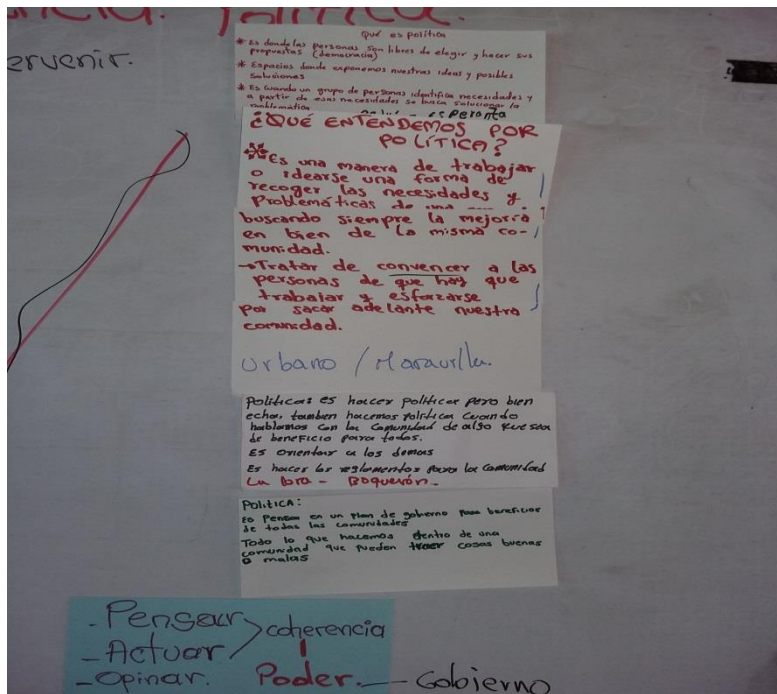 política.
ervenir.
Qué es política
* Es donde las personas son libres de elegir y hacer sus
propuestas (democracia)
* Espacios donde exponemos nuestras ideas y posibles
soluciones
* Es cuando un grupo de personas identifica necesidades y
a partir de esas necesidades se busca solucionar la
problemática
esperanta
¿QUÉ ENTENDEMOS POR
POLÍTICA?
* Es una manera de trabajar
o idearse una forma de
recoger las necesidades y
Problemáticas de una
buscando siempre la mejoría
en bien de la misma co-
munidad.
→Tratar de convencer a las
personas de que hay que
trabajar y esforzarse
por sacar adelante nuestra
comunidad.
Urbano / Maravilla.
Politica: es hacer politica pero bien
echa, tambien hacemos politica cuando
hablamos con la comunidad de algo que sea
de beneficio para todos.
ES orientar a los demas
Es hacer los reglamentos para la comunidad
La Lora - Boquerón.
POLITICA:
Es Pensar en un plan de gobierno para beneficios
de todas las comunidades
Todo lo que hacemos dentro de una
comunidad que pueden traer cosas buenas
o malas
- Pensar
- Actuar
- Opinar.
coherencia
Poder. — Gobierno